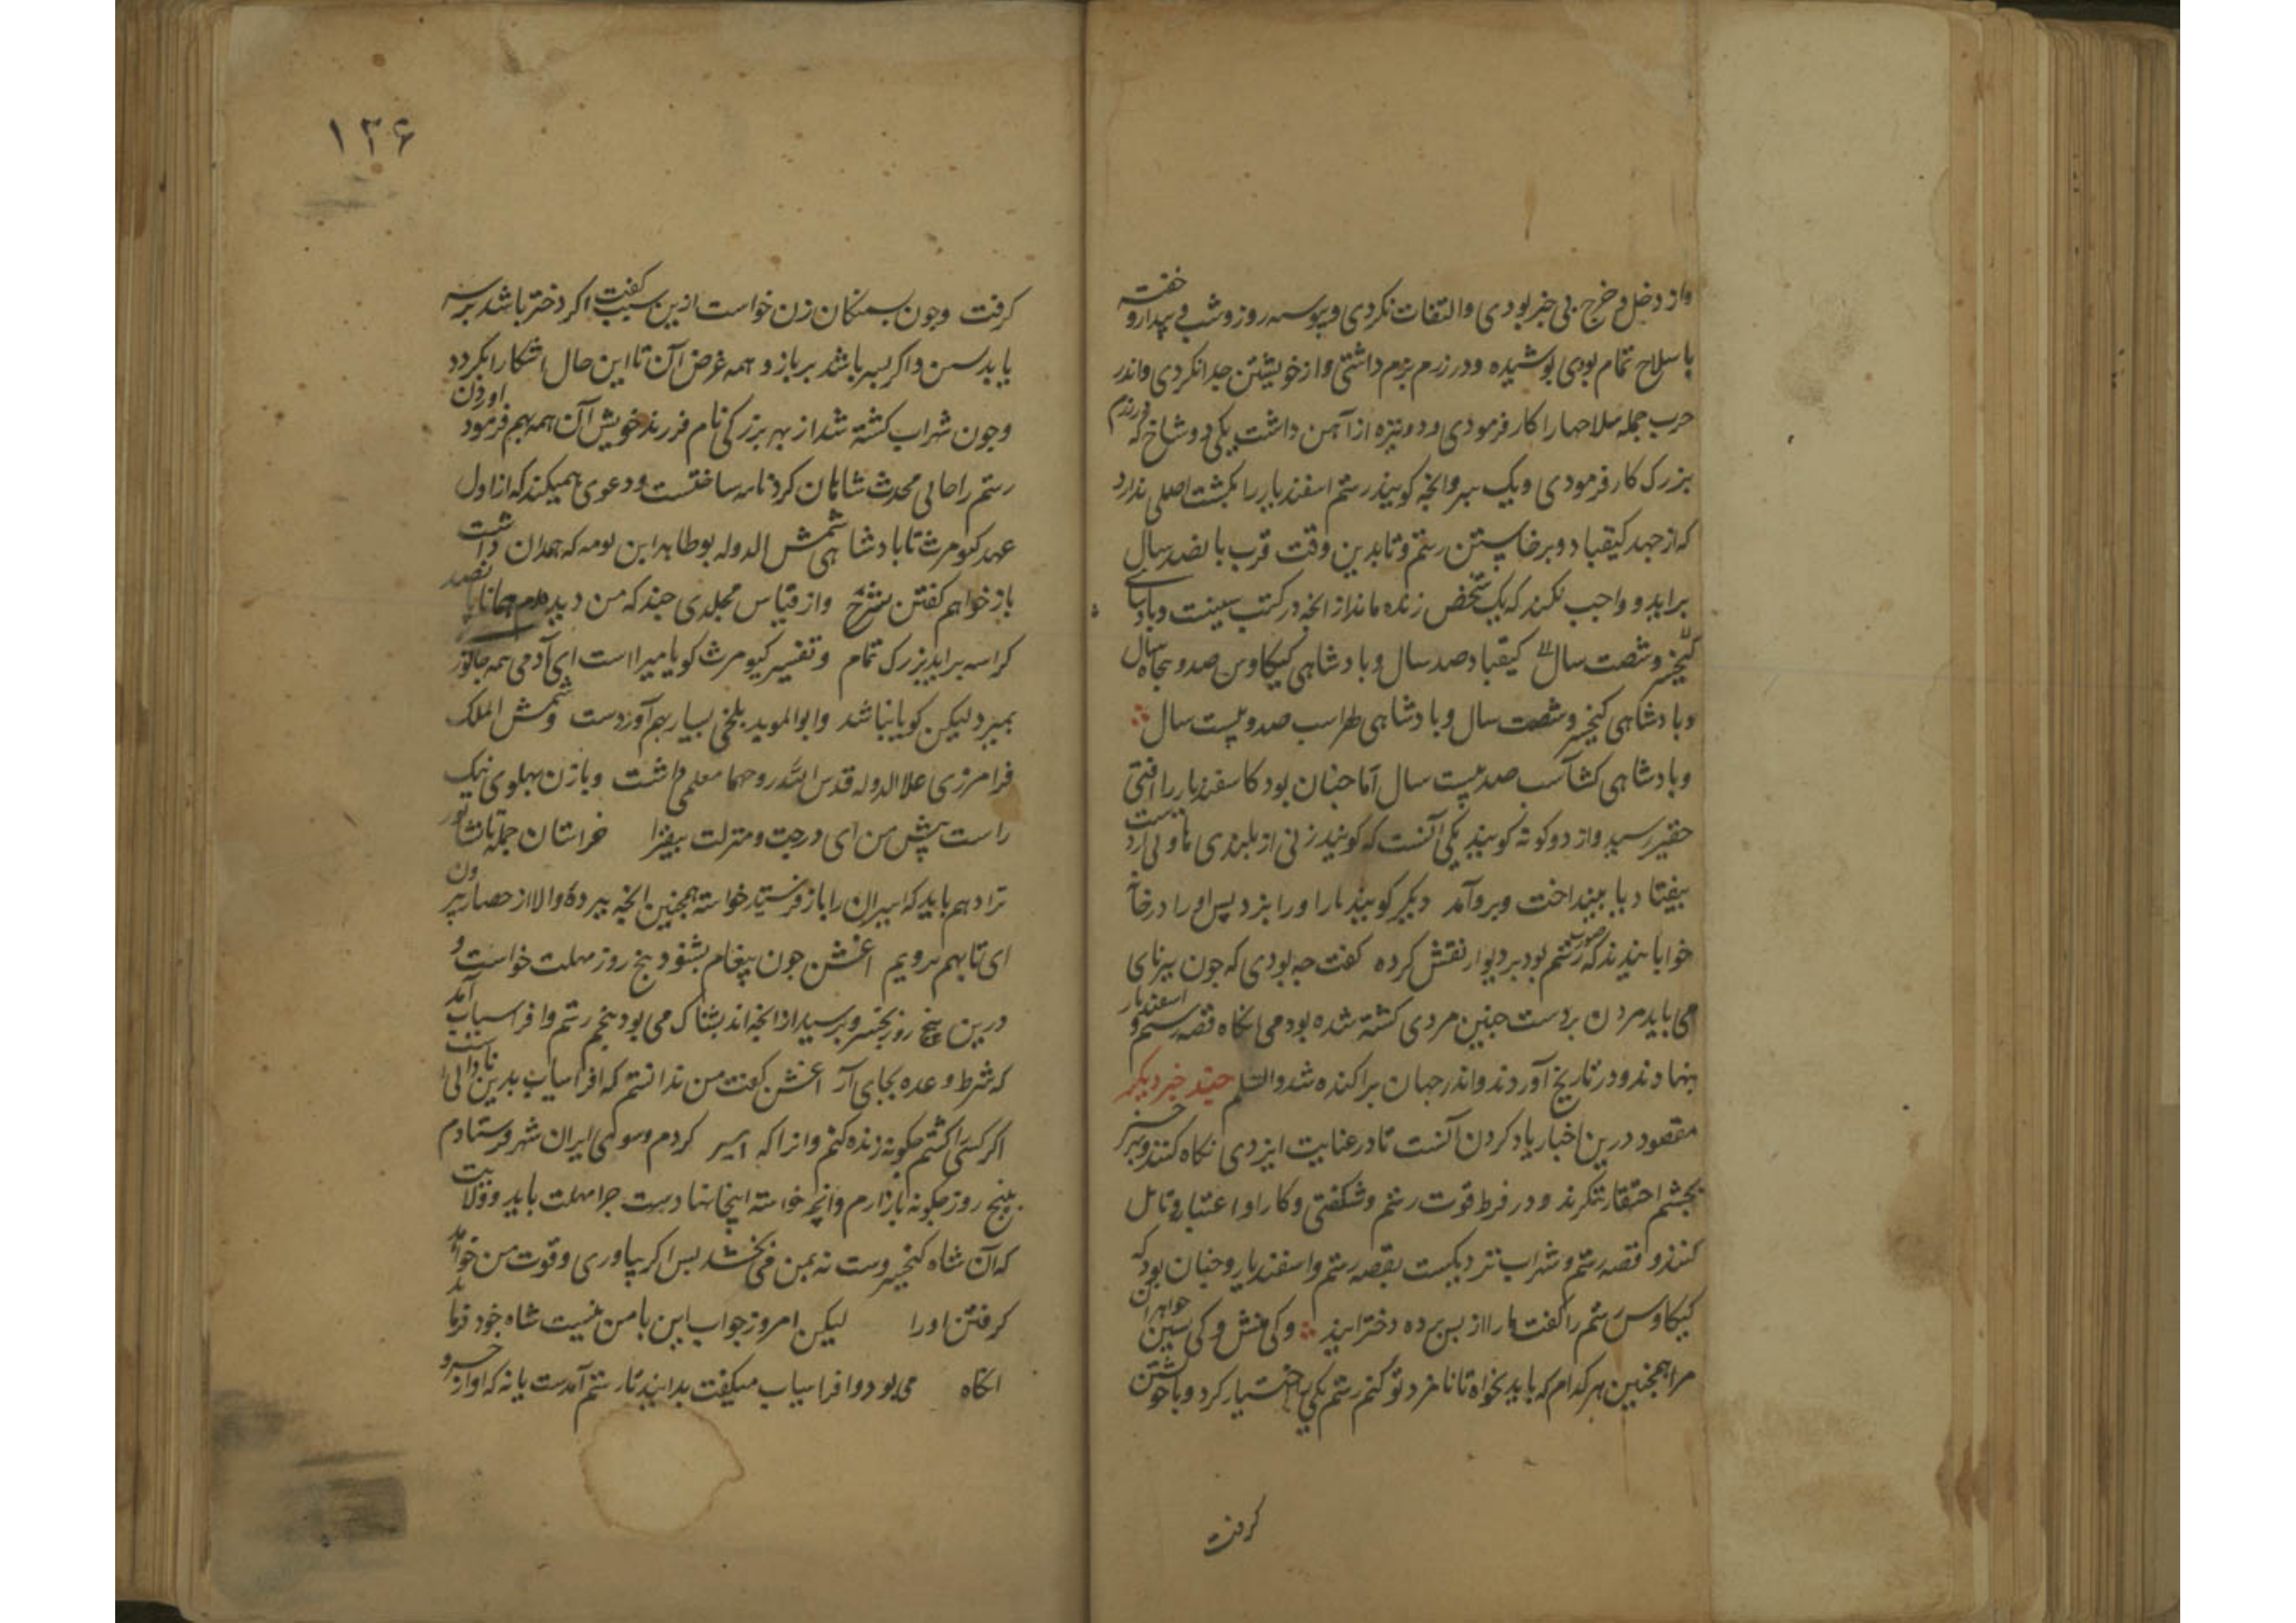 واز دخل و خرج بی خبر بودی والتفات نکردی وپیوسته روز و شب فی بیدار و خفته
با سلاح تمام بودی پوشیده ودر رزم بزم داشتی واز خویشتن جدا نکردی واندر
حرب جمله سلاحها را کار فرمودی ودو نیزه از آهن داشت یکی دو شاخ که در رزم
بزرک کار فرمودی ویک سر وانچه کویند رستم اسفندیار را بکشت اصلی ندارد
که از عهد کیقباد وبرخاستن رستم وتا بدین وقت قرب پانصد سال
براید و واجب نکند که یک شخص زنده ماند از انچه در کتب سینت وپادشاهی
کیخسرو شصت سال کیقباد صد سال وپادشاهی کیکاوس صد و پنجاه سال
وپادشاهی کیخسرو شصت سال وپادشاهی لهراسب صد و بیست سال
وپادشاهی کشتاسب صد بیست سال اما چنان بود کاسفندیار را افتی
حقیر رسید واز دو کونه کویند یکی آنست که کویند زنی از بلندی ناو لی اردست
بیفتاد یا بینداخت وبرو آمد دیکر کویند مارا اورا بزد پس اورا در خانه
خوابانیدند که صورت رستم بود بر دیوار نقش کرده کفت چه بودی که چون بیرنای
می باید مردن بر دست چنین مردی کشته شده بودمی انکاه قصه رستم و اسفندیار
بنهادند ودر تاریخ آوردند واندر جهان پراکنده شد والسلم چند خبر دیکر
مقصود درین اخبار یاد کردن آنست تا در عنایت ایزدی نکاه کنند وبر خبر
بچشم احتقار ننکرند ودر فرط قوت رستم وشکفتی وکار او اعتبار وتامل
کنند و قصه رستم و شهراب نزدیکست بقصه رستم واسفندیار وچنان بود که
کیکاوس رستم را کفت ما را از پس پرده دختر ایند وکی منش وکی سین خواهران
مرا همچنین هر کدام که باید بخواه تا نامزد تو کنم رستم یکی اختیار کرد وبا خویشتن
کرفت
۱۳۶
کرفت وچون بسمنکان زن خواست ازین سبب کفت اکر دختر باشد بر سه
یا بدسن واکر پسر باشد بر بازو همه غرض آن تا این حال آشکارا نکردد
وچون شهراب کشته شد از بهر بزرکی نام فرزند خویش آن همه بهم فرمود او زن
رستم را حالی محدث شاهان کردنامه ساختست ودعوی همیکند که از اول
عهد کیومرث تا پادشاهی شمش الدوله بو طاهر ابن بویه که همدان داشت
باز خواهم کفتن بشرح واز قیاس مجلدی چند که من دیدم همانا پانصد
کراسه براید بزرک تمام وتفسیر کیومرث کویا میرا است ای آدمی همه جانور
بمیرد لیکن کویا نباشد وابو الموید بلخی بسیار بهم آوردست وشمش الملک
فرامرزی علا الدوله قدس الله روحهما معلمی داشت وبا زن پهلوی نیک
راست پیش من ای درجت ومنزلت بیفزا خراستان جمله تا نشاپور
ترا دهم باید که اسیران را باز فرستید خواسته همچنین انچه ببرده والا از حصار بیرون
ای تا بهم برویم اغش چون پیغام بشنود پنج روز مهلت خواست و
درین پنج روز کیخسرو برسید از انچه اندیشناک می بود پنجم رستم وافراسیاب آمد
که شرط وعده بجای آر اغش کفت من ندانستم که افراسیاب بدین نادانی است
اکر کسی را کشتم چکونه زنده کنم وانرا که اسیر کردم وسوی ایران شهر فرستادم
بپنج روز چکونه باز ارم وانچه خواسته اینجا نهادست چرا مهلت باید وولایت
که آن شاه کیخسروست نه بمن می بخشد پس اکر بیاوری وقوت من خواهد
کرفتن اورا لیکن امروز جواب این با من نیست شاه خود فرماید
انکاه می بود وافراسیاب میکفت بدانید تا رستم آمدست یا نه که اواز خسرو